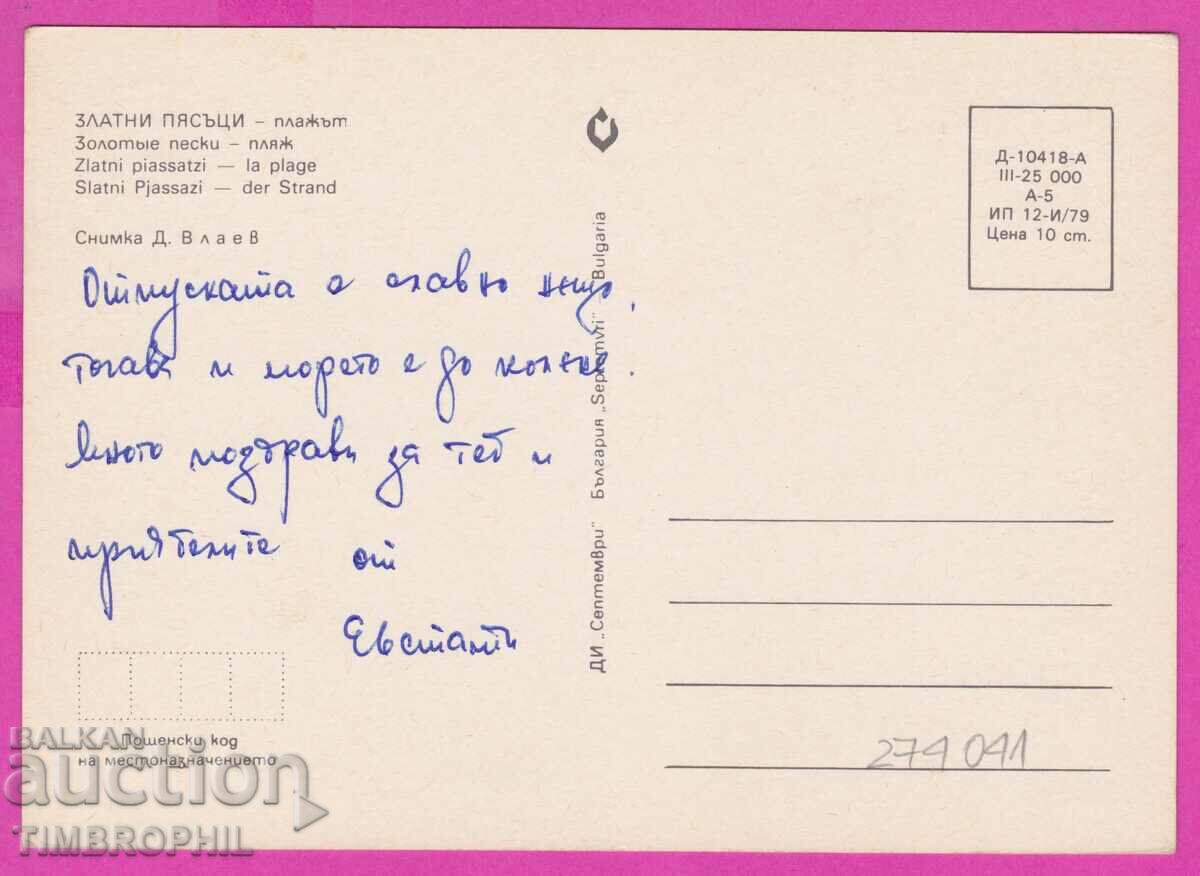 ЗЛАТНИ ПЯСЪЦИ – плажът
Золотые пески – пляж
Zlatni piassatzi — la plage
Slatni Pjassazi — der Strand
Снимка Д. Влаев
Отпуската е славно нещо,
тогава и морето е до колене.
Много поздрави за теб и
приятелите от
Евстати
Пощенски код
на местоназначението
ДИ „Септември" България „Septemvri" Bulgaria
Д-10418-А
III-25 000
А-5
ИП 12-И/79
Цена 10 ст.
274 041
BALKAN
auction
TIMBROPHIL